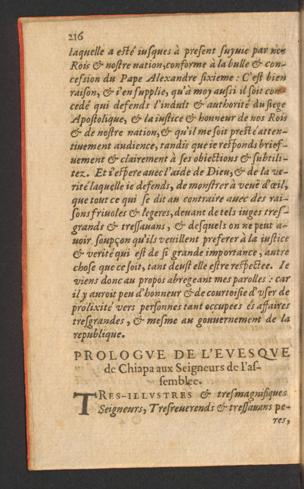 216
laquelle a esté iusques à present suyuie par noz
Rois & nostre nation, conforme à la bulle & con-
cession du Pape Alexandre sixieme: C'est bien
raison, & i'en supplie, qu'à moy aussi il soit con-
cedé qui defends l'indult & authorité du siege
Apostolique, & la iustice & honneur de noz Rois
& de nostre nation, & qu'il me soit presté atten-
tiuement audience, tandis que ie responds brief-
uement & clairement à ses obiections & subtili-
tez. Et i'espere auec l'aide de Dieu, & de la ve-
rité laquelle ie defends, de monstrer à veuë d'œil,
que tout ce qui se dit au contraire auec des rai-
sons friuoles & legeres, deuant de tels iuges tres-
grands & tressauans, & desquels on ne peut a-
uoir soupçon qu'ils veuillent preferer à la iustice
& verité qui est de si grande importance, autre
chose que ce soit, tant deust elle estre respectee. Ie
viens donc au propos abregeant mes paroles: car
il y auroit peu d'honneur & de courtoisie d'vser de
prolixité vers personnes tant occupees és affaires
tresgrandes, & mesme au gouuernement de la
republique.
PROLOGVE DE L'EVESQVE
de Chiapa aux Seigneurs de l'as-
semblee.
TRES-ILLVSTRES & tresmagnifiques
Seigneurs, Tresreuerends & tressauans pe-
res,